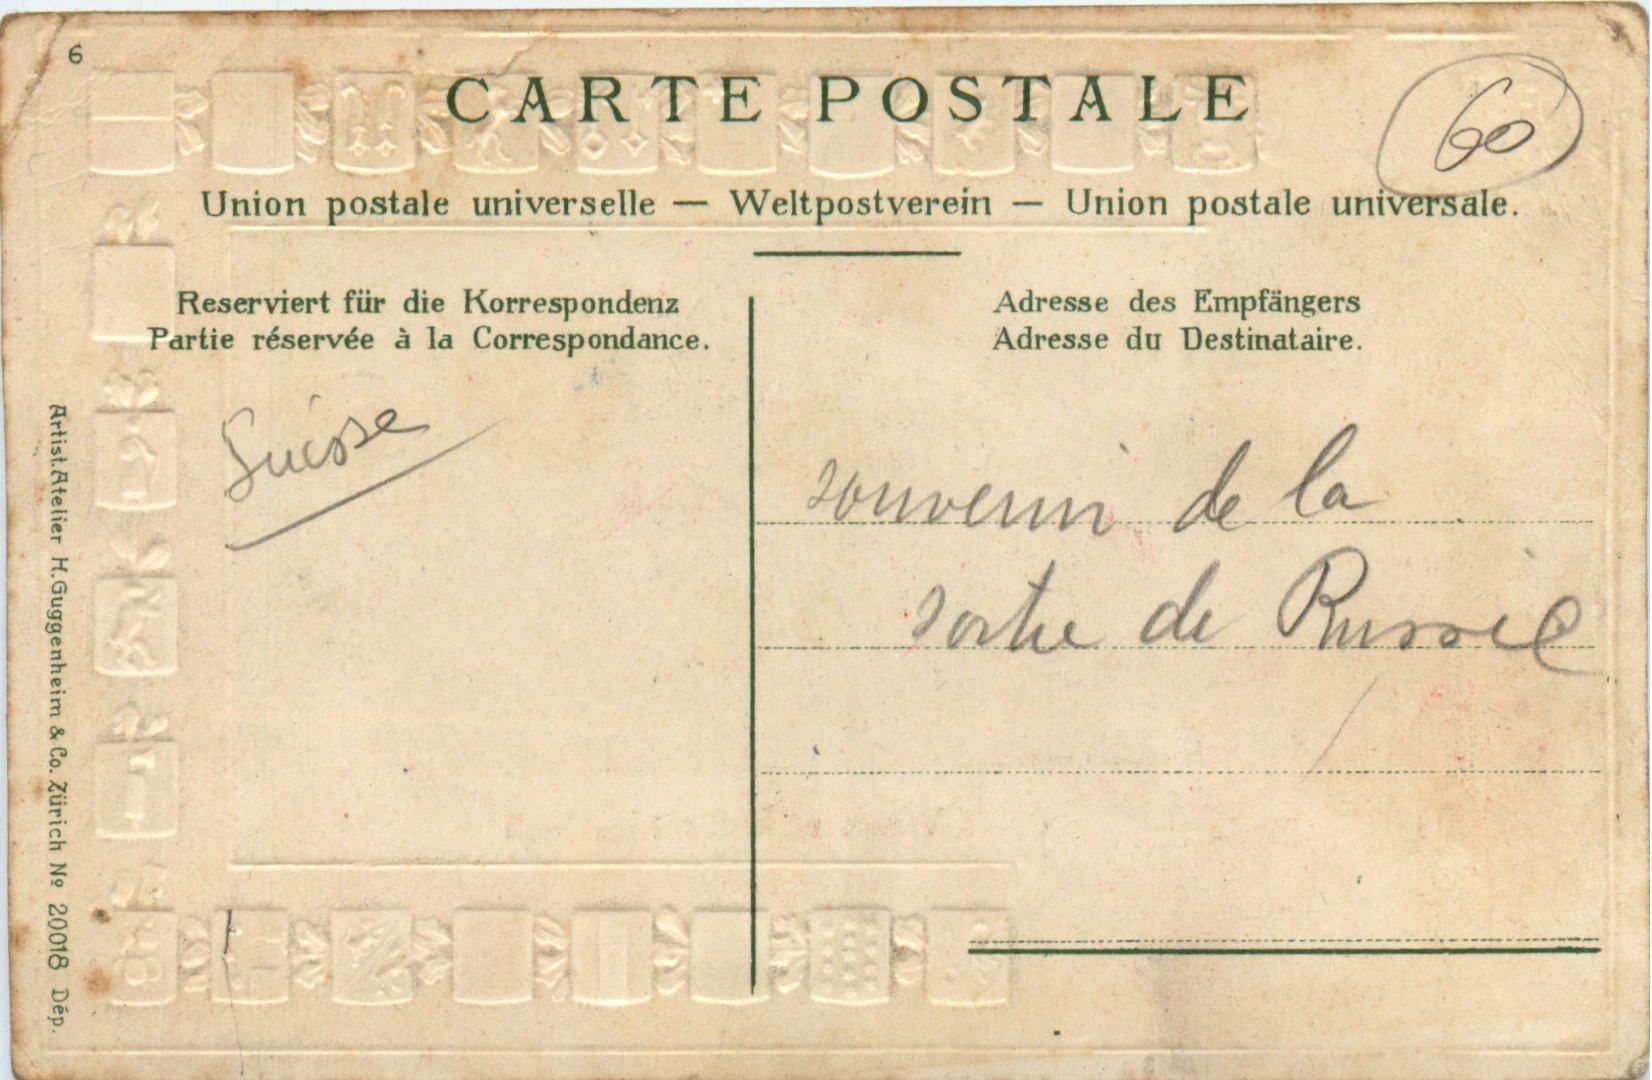 6
CARTE POSTALE
60
Union postale universelle — Weltpostverein — Union postale universale.
Reserviert für die Korrespondenz
Partie réservée à la Correspondance.
Adresse des Empfängers
Adresse du Destinataire.
Suisse
souvenir de la
sortie de Russie
Artist. Atelier H. Guggenheim & Co. Zürich Nº 20018 Dép.